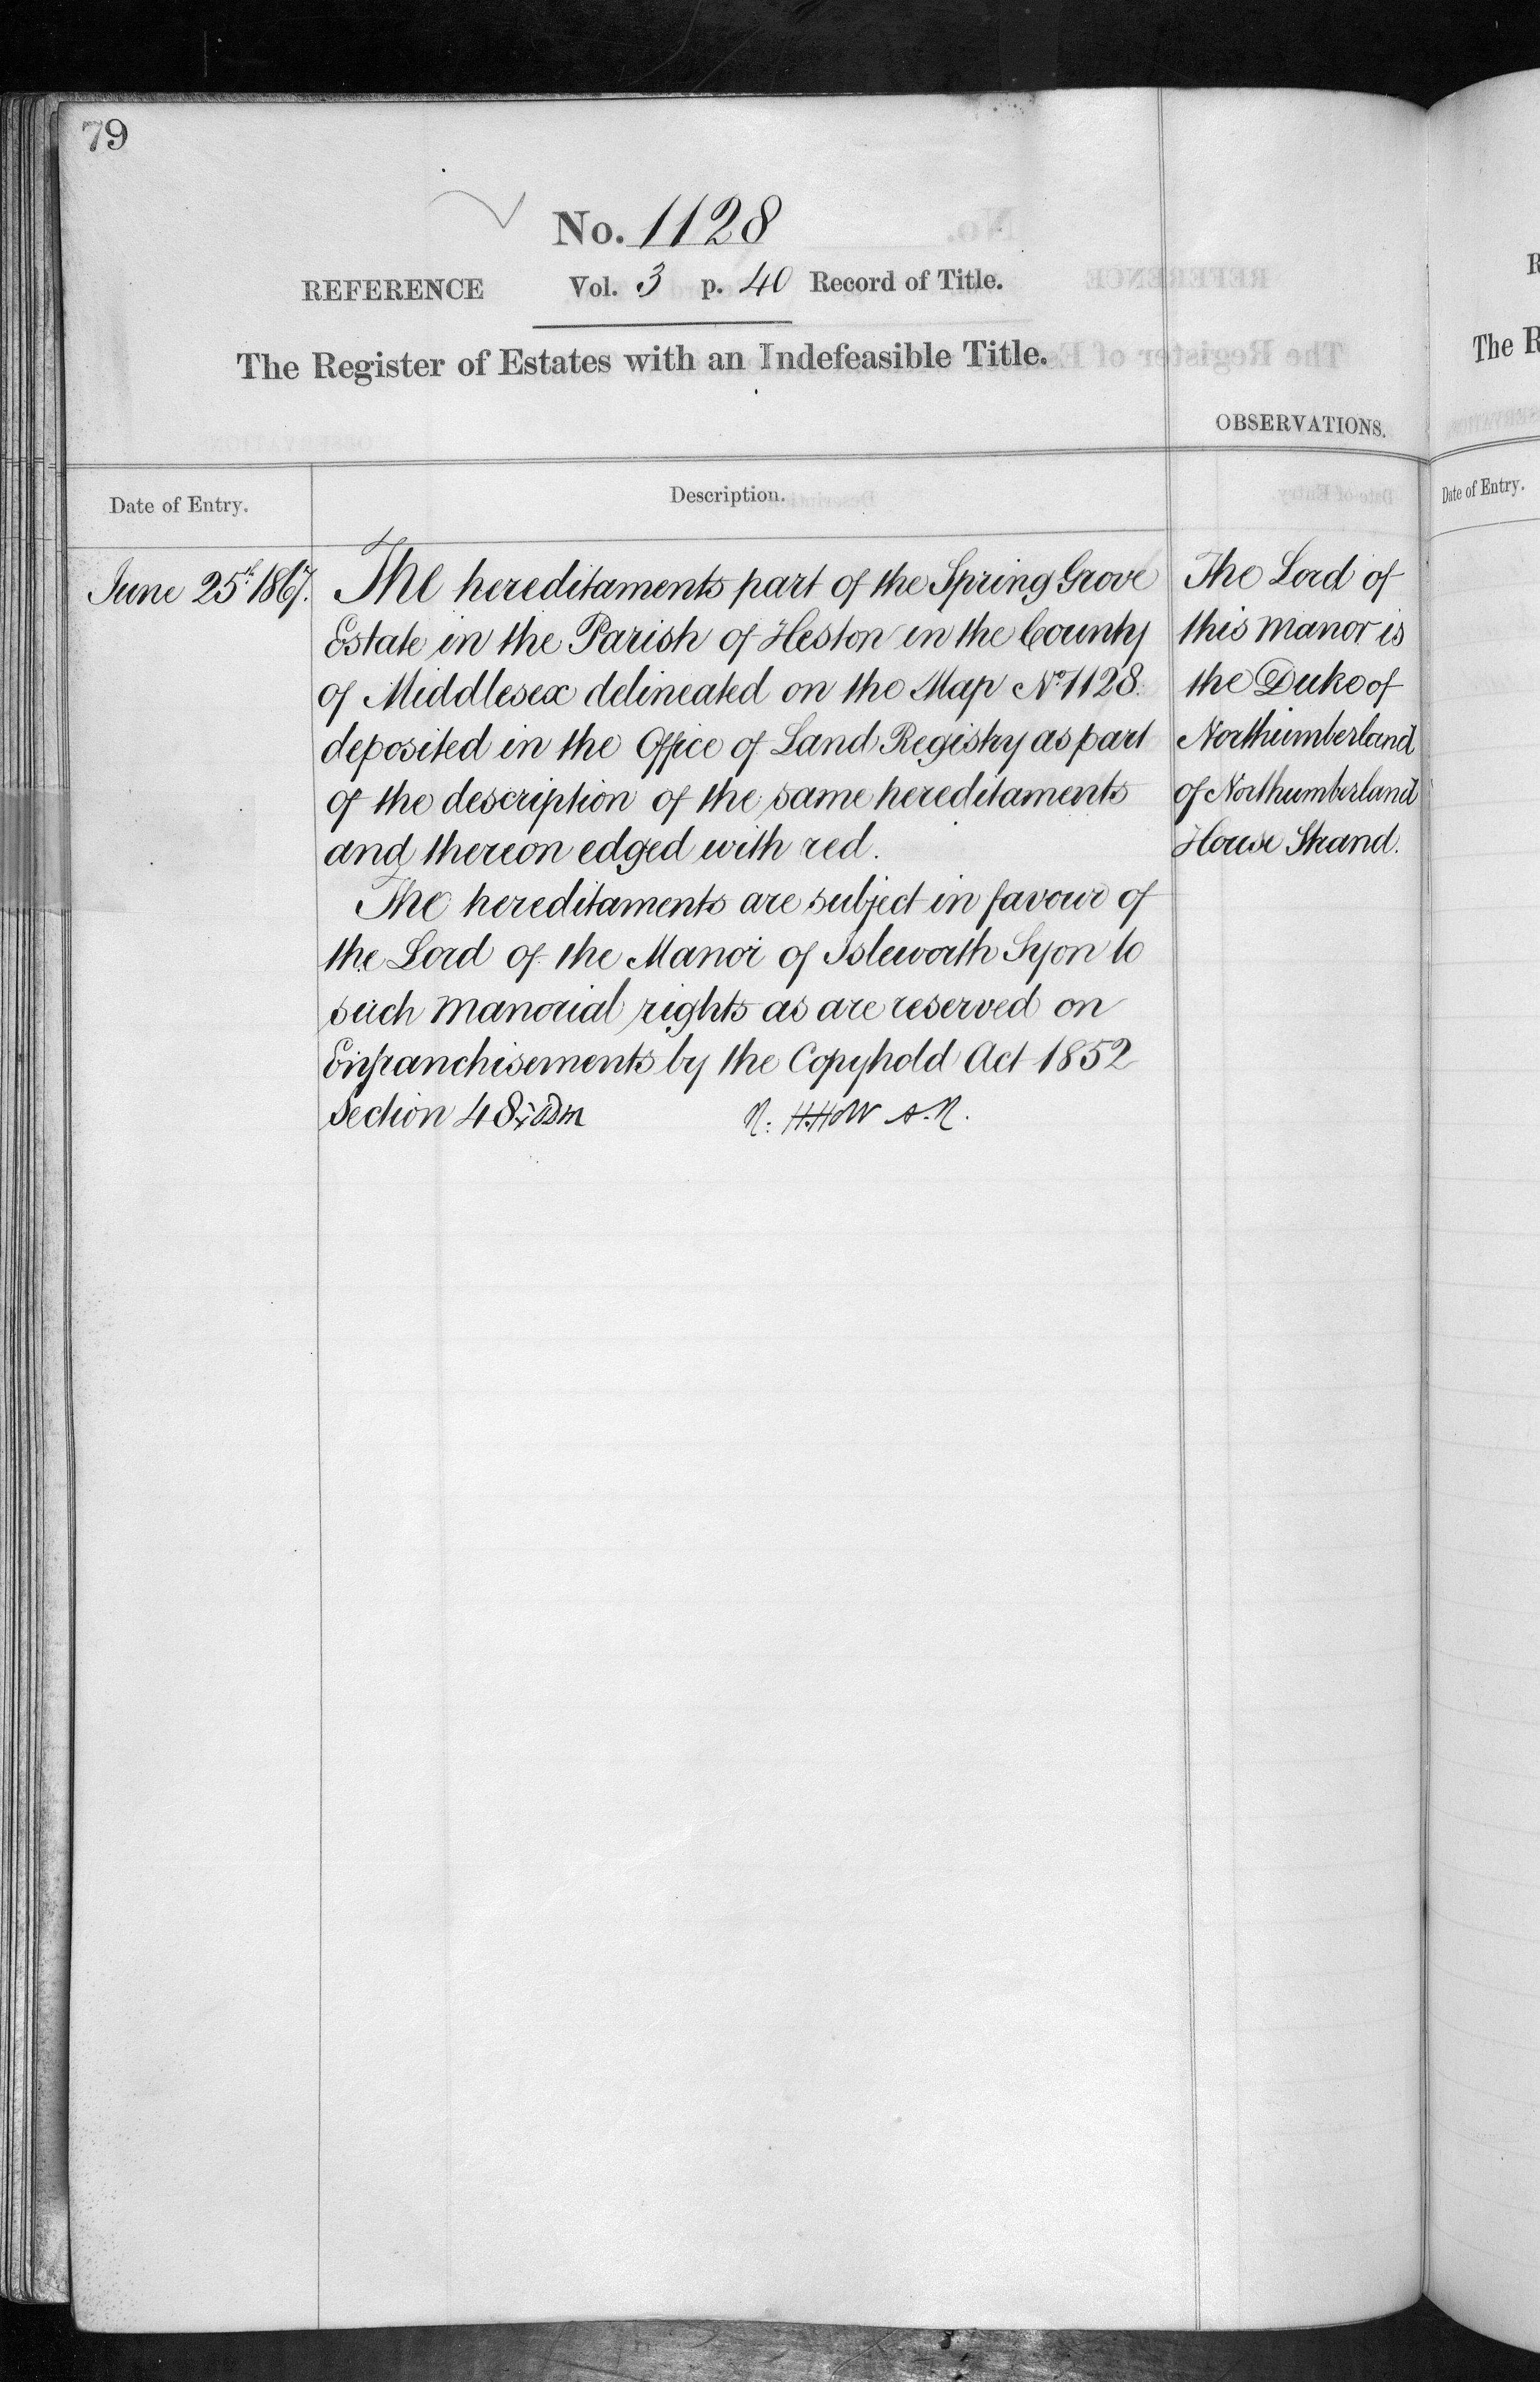 79
No. 1128
REFERENCE Vol. 3 p. 40 Record of Title.
The Register of Estates with an Indefeasible Title.
OBSERVATIONS.
Date of Entry.
Description.
June 25th 1867.
The hereditaments part of the Spring Grove
Estate in the Parish of Heston in the County
of Middlesex delineated on the Map No 1128.
deposited in the Office of Land Registry as part
of the description of the same hereditaments
and thereon edged with red.
The hereditaments are subject in favour of
the Lord of the Manor of Isleworth Syon to
such manorial rights as are reserved on
Enfranchisements by the Copyhold Act 1852
Section 48
The Lord of
this manor is
the Duke of
Northumberland
of Northumberland
House Strand.
The R
Date of Entry.